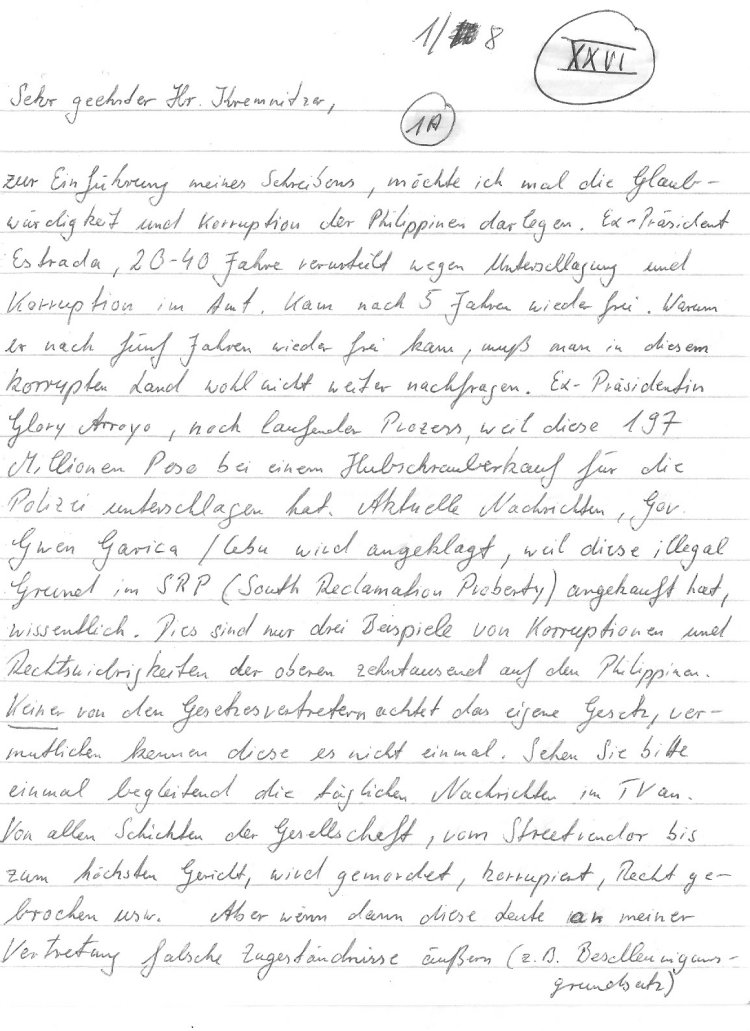 1/ 8
XXVI
Sehr geehrter Hr. Kremnitzer,
1A
zur Einführung meines Schreibens, möchte ich mal die Glaub-
würdigkeit und Korruption der Philippinen darlegen. Ex-Präsident
Estrada, 20-40 Jahre verurteilt wegen Unterschlagung und
Korruption im Amt. Kam nach 5 Jahren wieder frei. Warum
er nach fünf Jahren wieder frei kam, muß man in diesem
korrupten Land wohl nicht weiter nachfragen. Ex-Präsidentin
Glory Arroyo, noch laufender Prozess, weil diese 197
Millionen Peso bei einem Hubschrauberkauf für die
Polizei unterschlagen hat. Aktuelle Nachrichten, Gov.
Gwen Garica / Cebu wird angeklagt, weil diese illegal
Grund im SRP (South Reclamation Proberty) angekauft hat,
wissentlich. Dies sind nur drei Beispiele von Korruptionen und
Rechtswidrigkeiten der oberen zehntausend auf den Philippinen.
Keiner von den Gesetzesvertretern achtet das eigene Gesetz, ver-
mutlichen kennen diese es nicht einmal. Sehen Sie bitte
einmal begleitend die täglichen Nachrichten im TV an.
Von allen Schichten der Gesellschaft, vom Streetvendor bis
zum höchsten Gericht, wird gemordet, korrupiert, Recht ge-
brochen usw. Aber wenn dann diese Leute an meiner
Vertretung falsche Zugeständnisse äußern (z.B.
grundsatz)